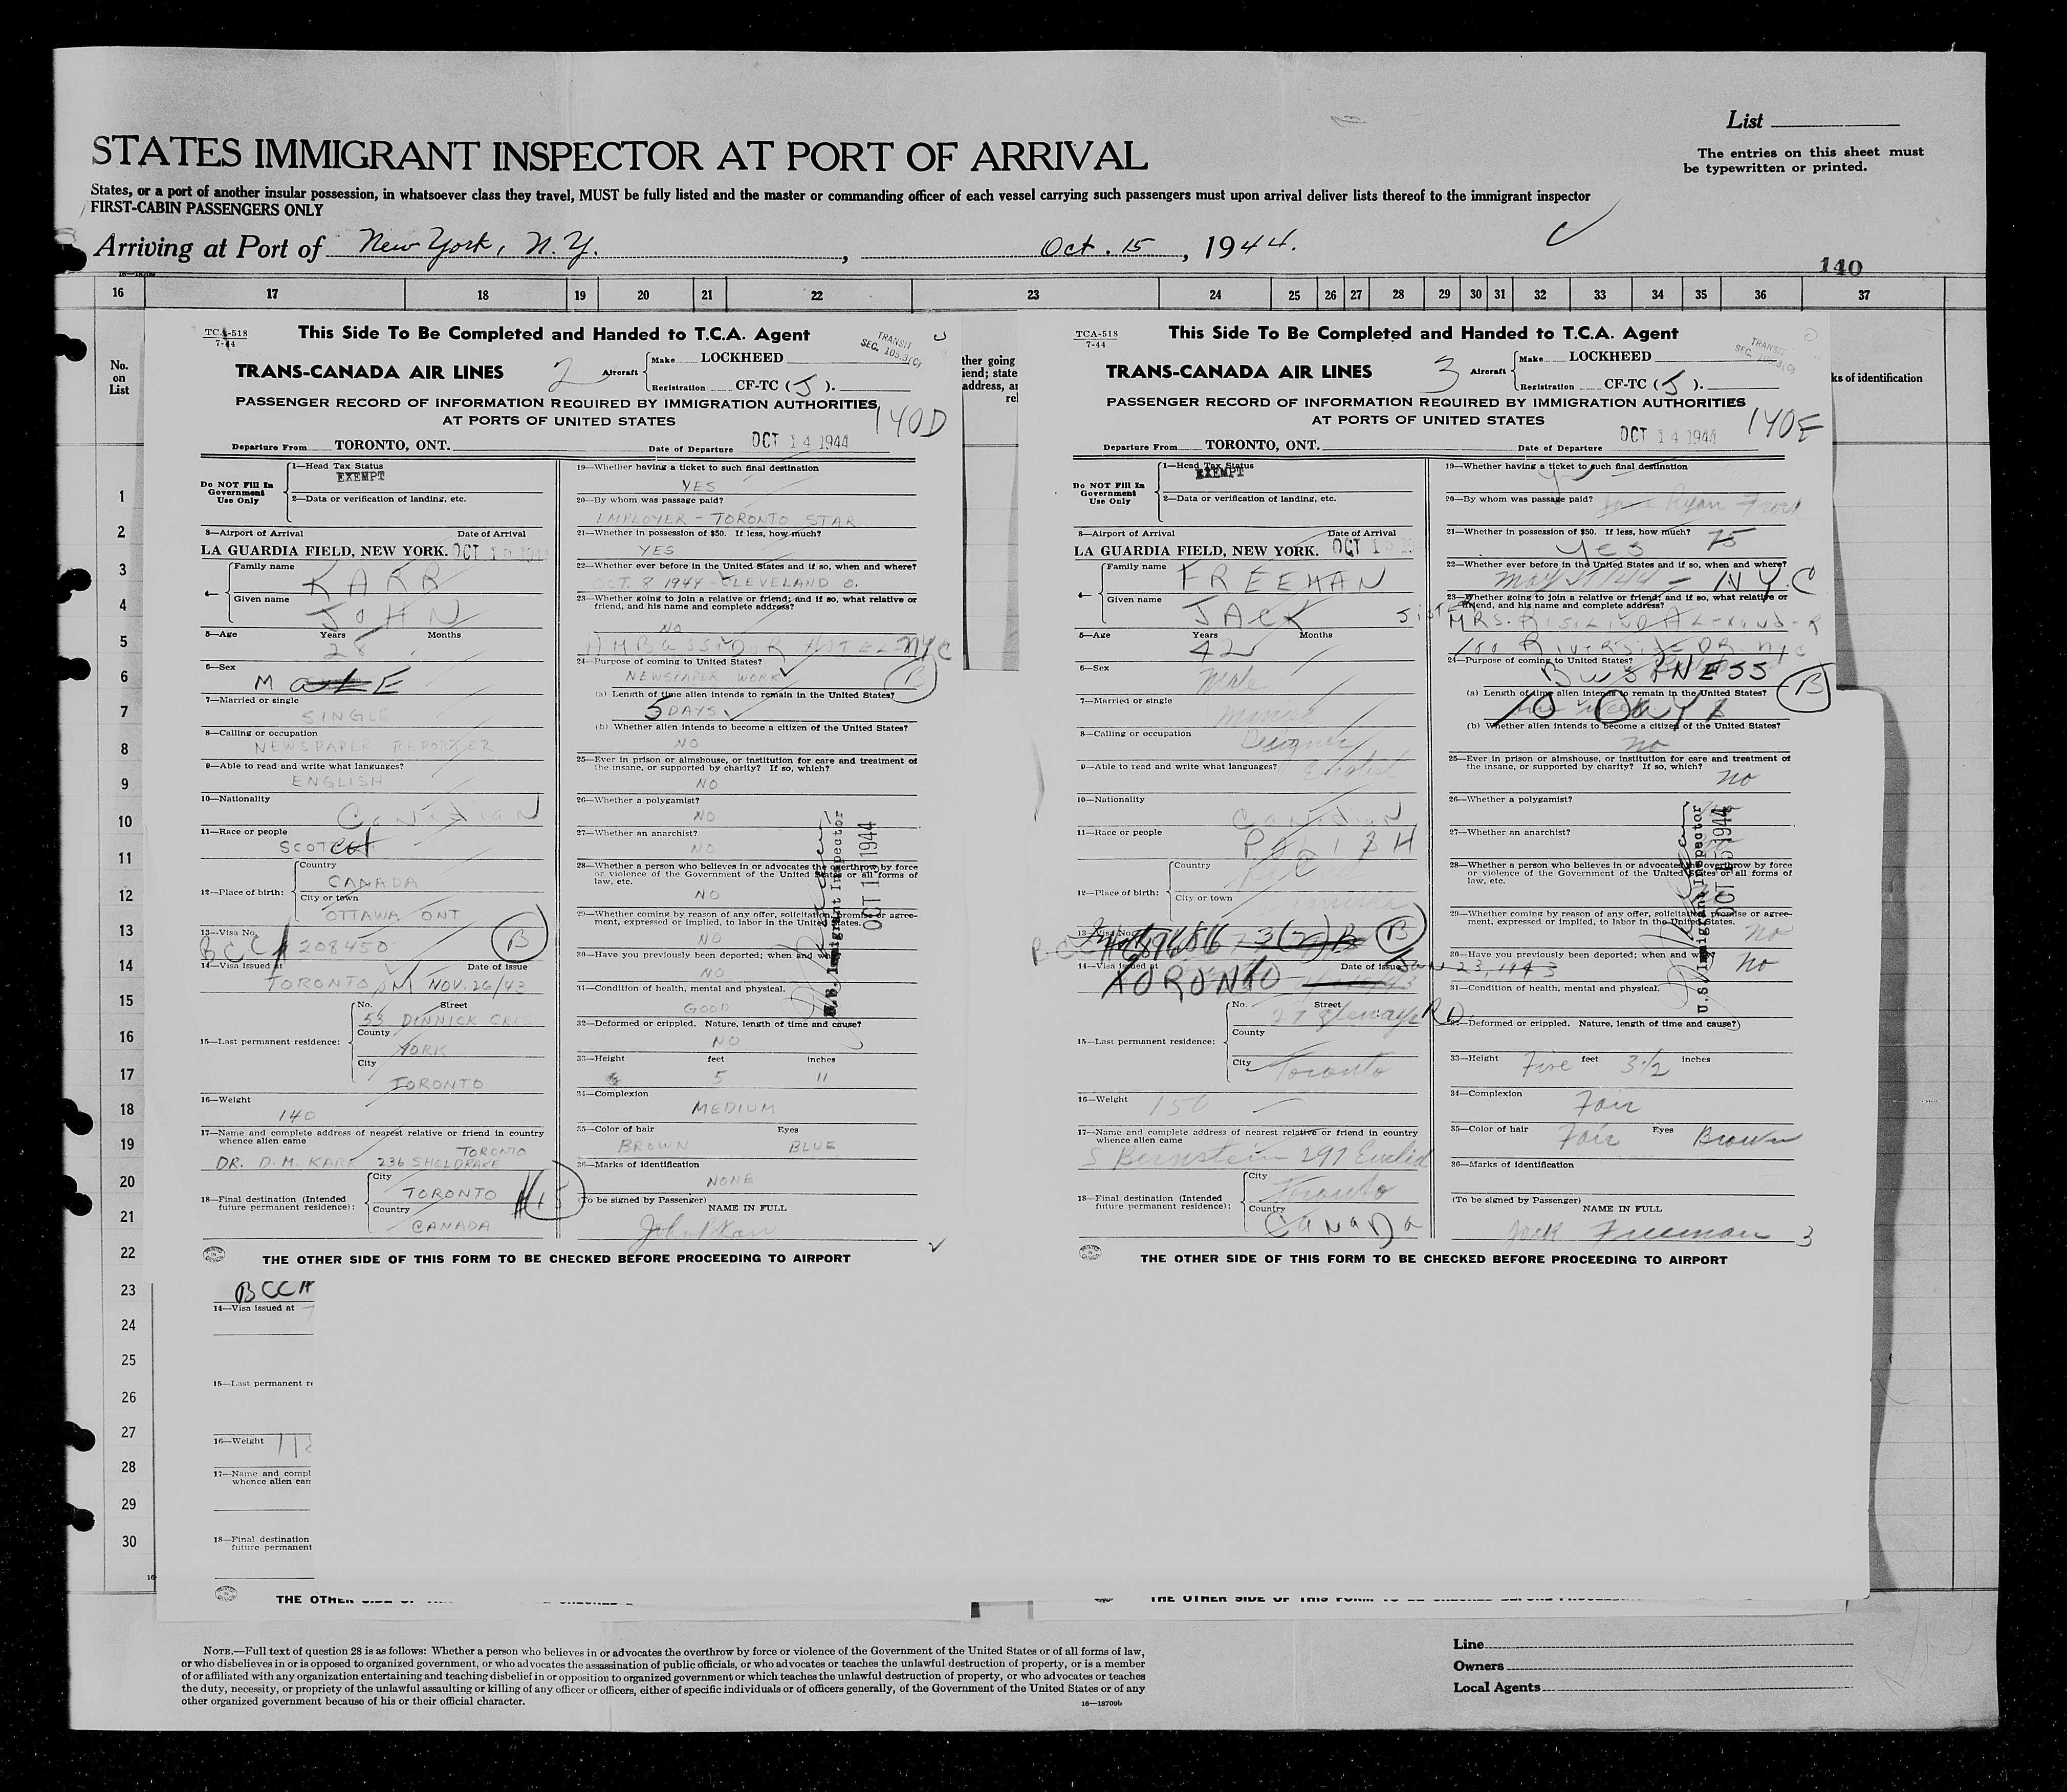 List
The entries on this sheet must
be typewritten or printed.
STATES IMMIGRANT INSPECTOR AT PORT OF ARRIVAL
States, or a port of another insular possession, in whatsoever class they travel, MUST be fully listed and the master or commanding officer of each vessel carrying such passengers must upon arrival deliver lists thereof to the immigrant inspector
FIRST-CABIN PASSENGERS ONLY
Arriving at Port of New York, N.Y. , Oct. 15 , 1944.
140
16 17 18 19 20 21 22 23 24 25 26 27 28 29 30 31 32 33 34 35 36 37
No.
on
List
1
2
3
4
5
6
7
8
9
10
11
12
13
14
15
16
17
18
19
20
21
22
23
24
25
26
27
28
29
30
TCA-518
7-44
This Side To Be Completed and Handed to T.C.A. Agent
TRANSIT
SEC. 105.3(C)
TRANS-CANADA AIR LINES 2 Aircraft
Make LOCKHEED
Registration CF-TC (J).
PASSENGER RECORD OF INFORMATION REQUIRED BY IMMIGRATION AUTHORITIES
AT PORTS OF UNITED STATES
140D
Departure From TORONTO, ONT. Date of Departure OCT 14 1944
Do NOT Fill In
Government
Use Only
1—Head Tax Status
EXEMPT
2—Data or verification of landing, etc.
3—Airport of Arrival Date of Arrival
LA GUARDIA FIELD, NEW YORK. OCT
4— Family name
KARR
Given name
JOHN
5—Age Years Months
28
6—Sex
MALE
7—Married or single
SINGLE
8—Calling or occupation
NEWSPAPER REPORTER
9—Able to read and write what languages?
ENGLISH
10—Nationality
Canadian
11—Race or people
SCOTCH
12—Place of birth:
Country
CANADA
City or town
OTTAWA ONT
13—Visa No.
BCCA 208450 B
14—Visa issued at Date of issue
TORONTO NOV. 26/43
15—Last permanent residence:
No. Street
53 DINNICK CRES
County
YORK
City
TORONTO
16—Weight
140
17—Name and complete address of nearest relative or friend in country
whence alien came
TORONTO
DR. D.M. KARR 236 SHELDRAKE
18—Final destination (Intended
future permanent residence):
City
TORONTO
Country
CANADA
19—Whether having a ticket to such final destination
YES
20—By whom was passage paid?
EMPLOYER - TORONTO STAR
21—Whether in possession of $50. If less, how much?
YES
22—Whether ever before in the United States and if so, when and where?
OCT. 8 1944 - CLEVELAND O.
23—Whether going to join a relative or friend; and if so, what relative or
friend, and his name and complete address?
NO
AMBASSADOR HOTEL NYC
24—Purpose of coming to United States?
NEWSPAPER WORK B
(a) Length of time alien intends to remain in the United States?
5 DAYS
(b) Whether alien intends to become a citizen of the United States?
NO
25—Ever in prison or almshouse, or institution for care and treatment of
the insane, or supported by charity? If so, which?
NO
26—Whether a polygamist?
NO
27—Whether an anarchist?
NO
28—Whether a person who believes in or advocates the overthrow by force
or violence of the Government of the United States or all forms of
law, etc.
NO
29—Whether coming by reason of any offer, solicitation, promise or agree-
ment, expressed or implied, to labor in the United States.
NO
30—Have you previously been deported; when and why
NO
31—Condition of health, mental and physical.
GOOD
32—Deformed or crippled. Nature, length of time and cause?
NO
33—Height feet inches
5 11
34—Complexion
MEDIUM
35—Color of hair Eyes
BROWN BLUE
36—Marks of identification
NONE
(To be signed by Passenger)
NAME IN FULL
U.S. Immigrant Inspector
OCT 15 1944
THE OTHER SIDE OF THIS FORM TO BE CHECKED BEFORE PROCEEDING TO AIRPORT
TCA-518
7-44
This Side To Be Completed and Handed to T.C.A. Agent
TRANS-CANADA AIR LINES 3 Aircraft
Make LOCKHEED
Registration CF-TC (J).
PASSENGER RECORD OF INFORMATION REQUIRED BY IMMIGRATION AUTHORITIES
AT PORTS OF UNITED STATES
140E
Departure From TORONTO, ONT. Date of Departure OCT 14 1944
Do NOT Fill In
Government
Use Only
1—Head Tax Status
EXEMPT
2—Data or verification of landing, etc.
3—Airport of Arrival Date of Arrival
LA GUARDIA FIELD, NEW YORK. OCT
4— Family name
FREEMAN
Given name
JACK
5—Age Years Months
42
6—Sex
Male
7—Married or single
8—Calling or occupation
Designer
9—Able to read and write what languages?
English
10—Nationality
Canadian
11—Race or people
POLISH
12—Place of birth:
Country
City or town
13—Visa No.
B
14—Visa issued at Date of issue
TORONTO Jan 23, 1943
15—Last permanent residence:
No. Street
County
City
Toronto
16—Weight
150
17—Name and complete address of nearest relative or friend in country
whence alien came
S Bernstein 297 Euclid
18—Final destination (Intended
future permanent residence):
City
Toronto
Country
CANADA
19—Whether having a ticket to such final destination
20—By whom was passage paid?
21—Whether in possession of $50. If less, how much?
Yes 75
22—Whether ever before in the United States and if so, when and where?
NYC
23—Whether going to join a relative or friend; and if so, what relative or
friend, and his name and complete address?
SISTER
100 RIVERSIDE DR. NYC
24—Purpose of coming to United States?
BUSINESS B
(a) Length of time alien intends to remain in the United States?
10 DAYS
(b) Whether alien intends to become a citizen of the United States?
no
25—Ever in prison or almshouse, or institution for care and treatment of
the insane, or supported by charity? If so, which?
no
26—Whether a polygamist?
27—Whether an anarchist?
28—Whether a person who believes in or advocates the overthrow by force
or violence of the Government of the United States or all forms of
law, etc.
29—Whether coming by reason of any offer, solicitation, promise or agree-
ment, expressed or implied, to labor in the United States.
no
30—Have you previously been deported; when and why?
no
31—Condition of health, mental and physical.
Deformed or crippled. Nature, length of time and cause?
33—Height Five feet 3 1/2 inches
34—Complexion
Fair
35—Color of hair Fair Eyes Brown
36—Marks of identification
(To be signed by Passenger)
NAME IN FULL
Jack Freeman 3
U.S. Immigrant Inspector
OCT 15 1944
THE OTHER SIDE OF THIS FORM TO BE CHECKED BEFORE PROCEEDING TO AIRPORT
ks of identification
BCCA
14—Visa issued at
15—Last permanent
16—Weight
17—Name and compl
whence alien can
18—Final destination
future permanent
NOTE.—Full text of question 28 is as follows: Whether a person who believes in or advocates the overthrow by force or violence of the Government of the United States or of all forms of law,
or who disbelieves in or is opposed to organized government, or who advocates the assassination of public officials, or who advocates or teaches the unlawful destruction of property, or is a member
of or affiliated with any organization entertaining and teaching disbelief in or opposition to organized government or which teaches the unlawful destruction of property, or who advocates or teaches
the duty, necessity, or propriety of the unlawful assaulting or killing of any officer or officers, either of specific individuals or of officers generally, of the Government of the United States or of any
other organized government because of his or their official character.
16—18709b
Line
Owners
Local Agents